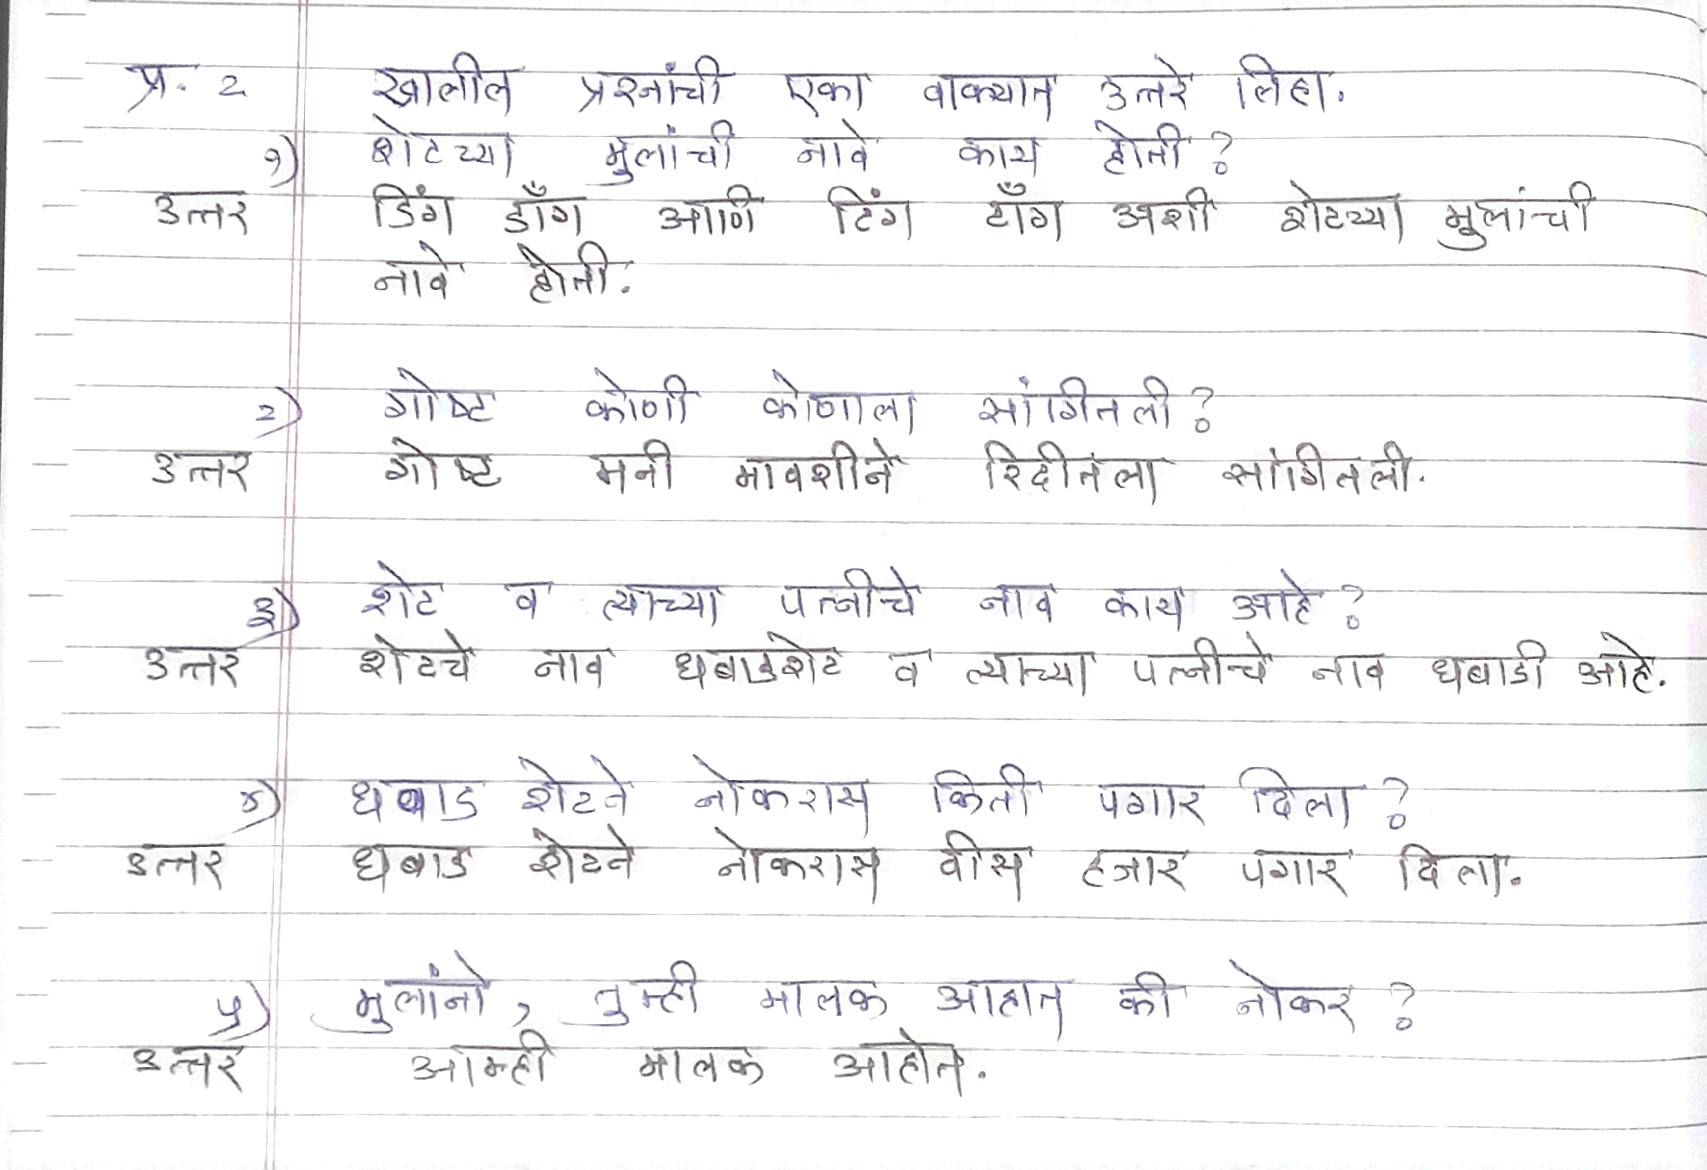 प्र. २ खालील प्रश्नांची एका वाक्यात उत्तरे लिहा.
१) शेटच्या मुलांची नावे काय होती?
उत्तर डिंग डाँग आणि टिंग टाँग अशी शेटच्या मुलांची
नावे होती.
२) गोष्ट कोणी कोणाला सांगितली?
उत्तर गोष्ट मनी मावशीने रिदीतला सांगितली.
३) शेट व त्याच्या पत्नीचे नाव काय आहे?
उत्तर शेटचे नाव धबाडशेट व त्याच्या पत्नीचे नाव धबाडी आहे.
४) धबाड शेटने नोकरास किती पगार दिला?
उत्तर धबाड शेटने नोकरास वीस हजार पगार दिला.
५) मुलांनो, तुम्ही मालक आहात की नोकर?
उत्तर आम्ही मालक आहोत.